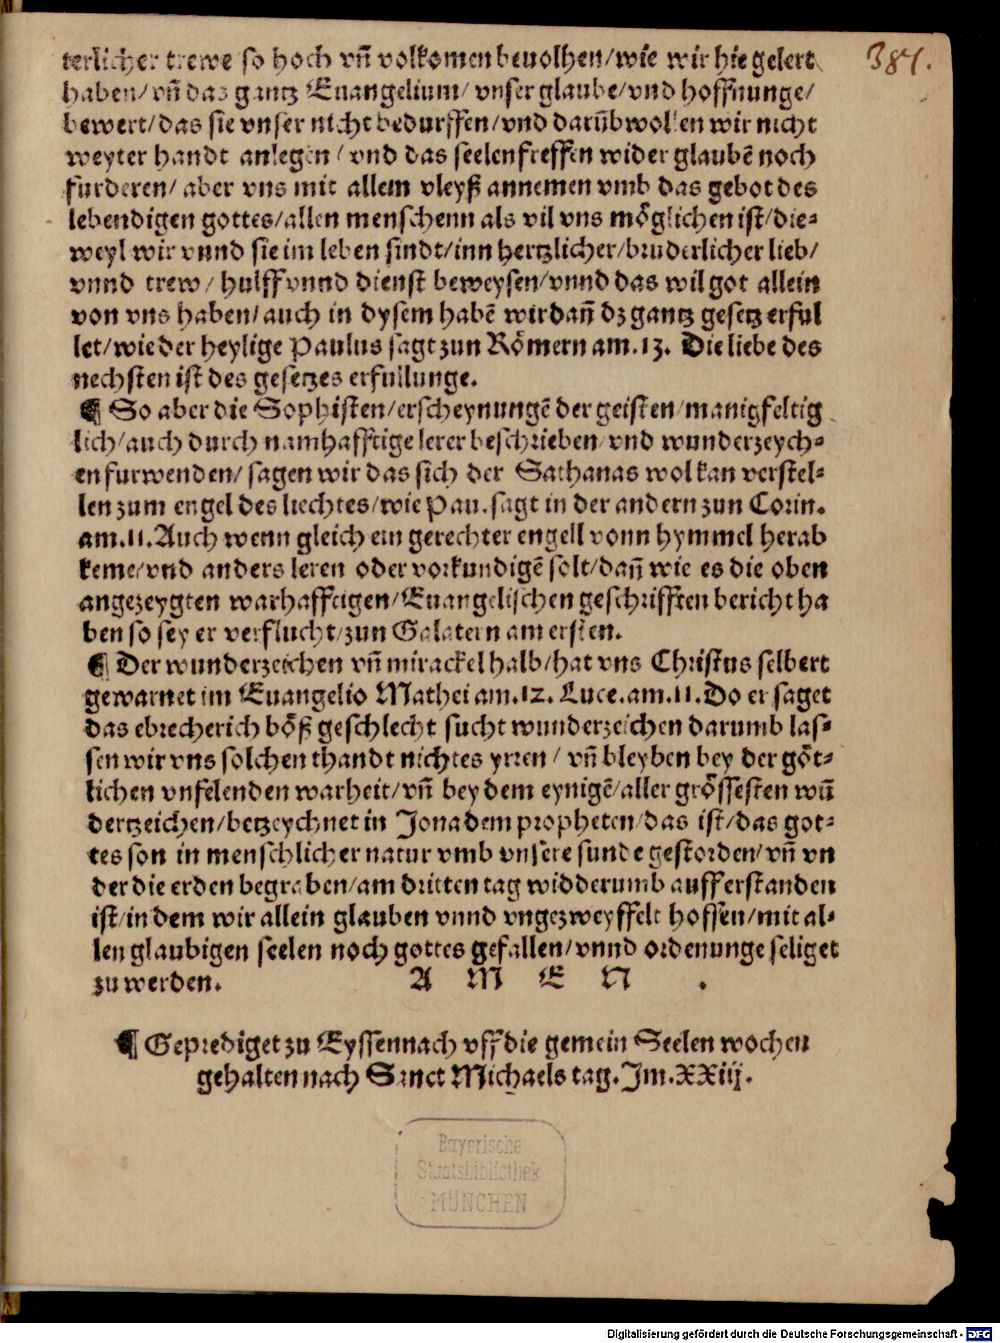 terlicher trewe so hoch vñ volkomen beuolhen/wie wir hie gelert
381.
haben/vñ das gantz Euangelium/vnser glaube/vnd hoffnunge/
bewert/das sie vnser nicht bedurffen/vnd darũb wollen wir nicht
weyter handt anlegen/vnd das seelenfreffen wider glaubē noch
furderen/aber vns mit allem vleyß annemen vmb das gebot des
lebendigen gottes/allen menschenn als vil vns möglichen ist/die⸗
weyl wir vnnd sie im leben sindt/inn hertzlicher/bruderlicher lieb/
vnnd trew/hulff vnnd dienst beweysen/vnnd das wil got allein
von vns haben/auch in dysem habē wir dañ dz gantz gesetz erful
let/wie der heylige Paulus sagt zun Römern am.13. Die liebe des
nechsten ist des gesetzes erfullunge.
¶ So aber die Sophisten/erscheynungē der geisten/manigfeltig
lich/auch durch namhafftige lerer beschrieben/vnd wunderzeych⸗
en furwenden/sagen wir das sich der Sathanas wol kan verstel⸗
len zum engel des liechtes/wie Pau.sagt in der andern zun Corin.
am.11.Auch wenn gleich ein gerechter engell vonn hymmel herab
keme/vnd anders leren oder vorkundigē solt/dañ wie es die oben
angezeygten warhafftigen/Euangelischen geschrifften bericht ha
ben so sey er verflucht/zun Galatern am ersten.
¶ Der wunderzeichen vñ mirackel halb/hat vns Christus selbert
gewarnet im Euangelio Mathei am.12. Luce.am.11.Do er saget
das ebrecherich böß geschlecht sucht wunderzeichen darumb las⸗
sen wir vns solchen thandt nichtes yrren/vñ bleyben bey der göt⸗
lichen vnfelenden warheit/vñ bey dem eynigē/aller grössesten wũ
dertzeichen/betzeychnet in Jona dem propheten/das ist/das got⸗
tes son in menschlicher natur vmb vnsere sunde gestorden/vñ vn
der die erden begraben/am dritten tag widderumb aufferstanden
ist/in dem wir allein glauben vnnd vngezweyffelt hoffen/mit al⸗
len glaubigen seelen noch gottes gefallen/vnnd ordenunge seliget
zu werden. A M E N .
¶ Geprediget zu Eyssennach vff die gemein Seelen wochen
gehalten nach Sanct Michaels tag.Im.XXiij.
Bayerische
Staatsbibliothek
MÜNCHEN
Digitalisierung gefördert durch die Deutsche Forschungsgemeinschaft - DFG